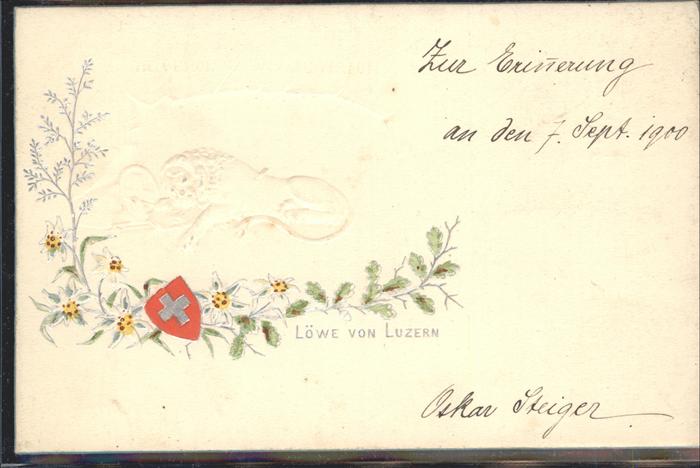 Zur Erin̅erung
an den 7. Sept. 1900
LÖWE VON LUZERN
Oskar Steiger